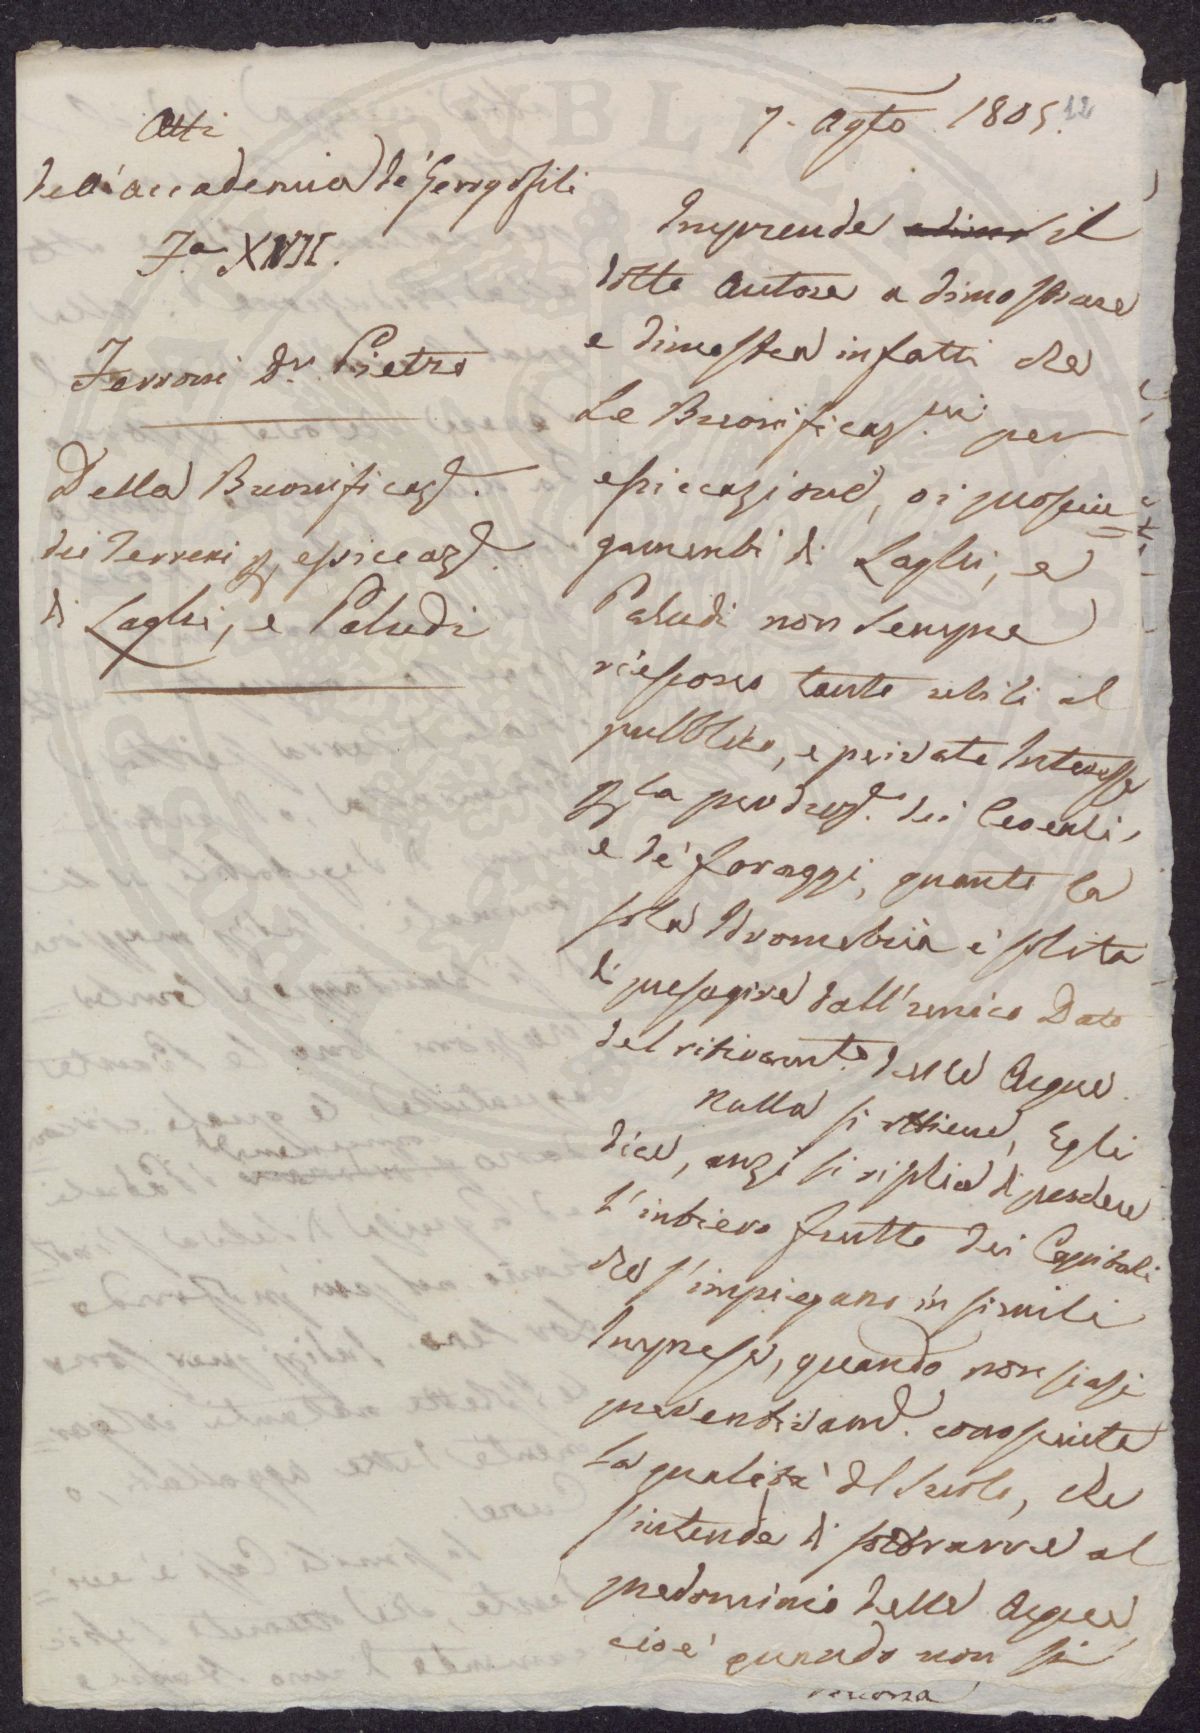 Atti
dell'accademia de' Georgofili
F.a XVII.
Ferroni Dr. Pietro
Della Buonificaz.e
dei Terreni p essiccaz.e
di Laghi, e Paludi
7. Agto 1805.
12
Imprende il
dotto Autore a dimostrare
e dimostra infatti che
Le Buonificaz.ni per
essiccazione, o i prosciu=
gamenti di Laghi, e
Paludi non sempre
riescono tanto utili al
pubblico, e privato Interesse
p la produz.e dei Cereali,
e de' foraggi, quanto la
sola Idrometria è solita
di presagire dall'unico Dato
del ritiramto delle Acque.
Nulla si ottiene, Egli
dice, anzi si risplica di perdere
l'intiero frutto dei Capitali
che s'impiegano in simili
Imprese, quando non siasi
preventivam.e conosciuta
La qualità del Suolo, che
s'intende di sottrarre al
predominio delle Acque,
cioè quando non si
conosca